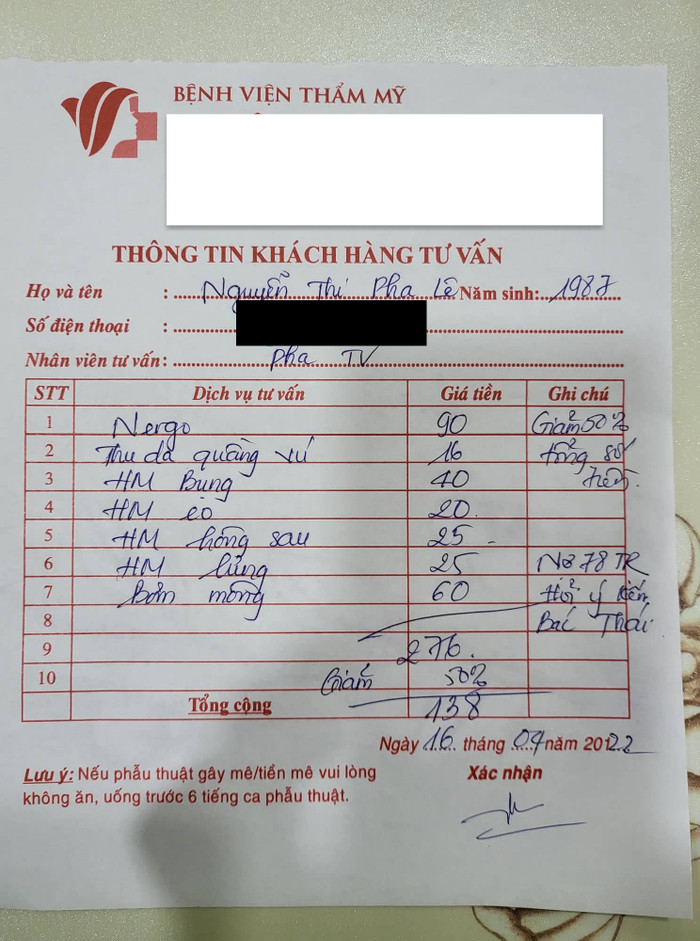 BỆNH VIỆN THẨM MỸ
THÔNG TIN KHÁCH HÀNG TƯ VẤN
Họ và tên : Nguyễn Thị Pha Lê Năm sinh: 1987
Số điện thoại :
Nhân viên tư vấn: Pha TV
STT Dịch vụ tư vấn Giá tiền Ghi chú
1 Nergo 90 Giảm 50%
2 Thu da quầng vú 16 tổng số
3 HM Bụng 40 trên.
4 HM eo 20.
5 HM hông sau 25 -
6 HM lưng 25 Nợ 78 TR
7 Bơm mông 60 Hỏi ý kiến
8 Bác Thái
9 276.
10 Giảm 50%
Tổng cộng 138
Ngày 16 tháng 04 năm 2022
Lưu ý: Nếu phẫu thuật gây mê/tiền mê vui lòng Xác nhận
không ăn, uống trước 6 tiếng ca phẫu thuật.